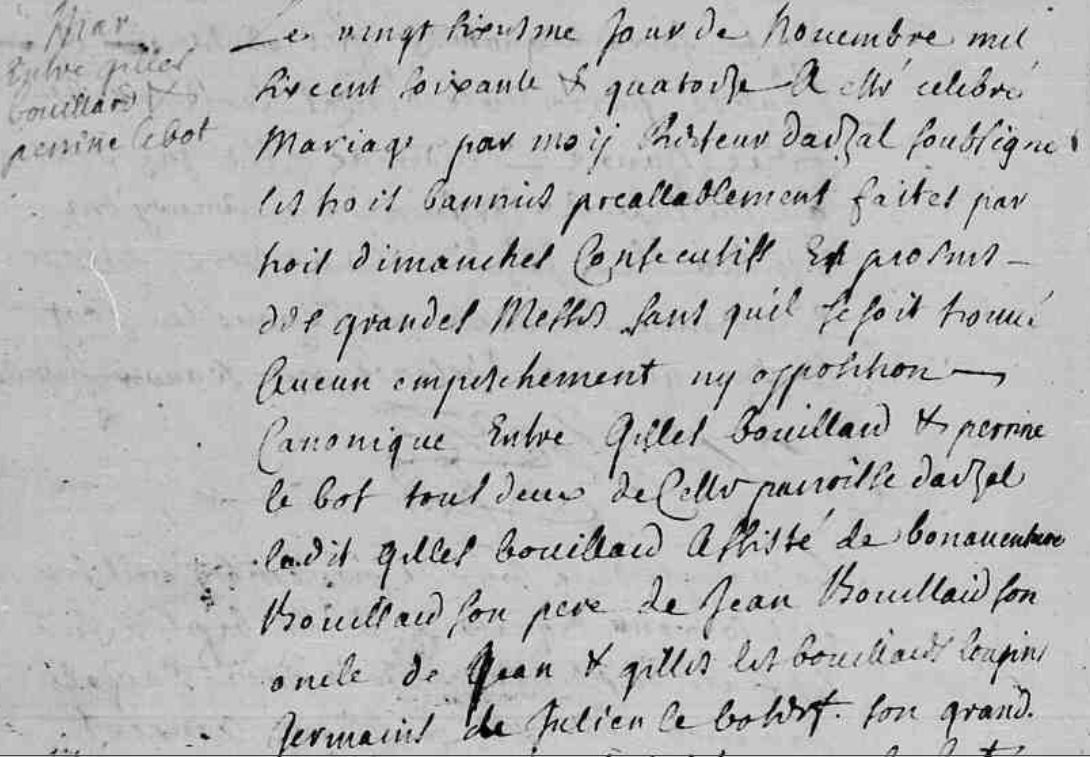 Mar
Entre gilles
bouillard &
perrine lebot
Le vingt sixesme jour de Novembre mil
six cent soixante & quatorze A esté celebré
Mariage par moÿ Recteur darzal soubsigné
les trois bannies preallablement faites par
trois dimanches Consecutifs Et prosnes
des grandes Messes sans quil se soit trouué
Aucun empeschement ny opposition
Canonique Entre Gilles bouillard & perrine
le bot tous deux de Cette parroisse darzal
ledit gilles bouillard Assisté de bonauenture
Bouillard son pere de Jean Bouillard son
oncle de Jean & gilles les bouillards Cousins
Germains de Julien le bot son grand